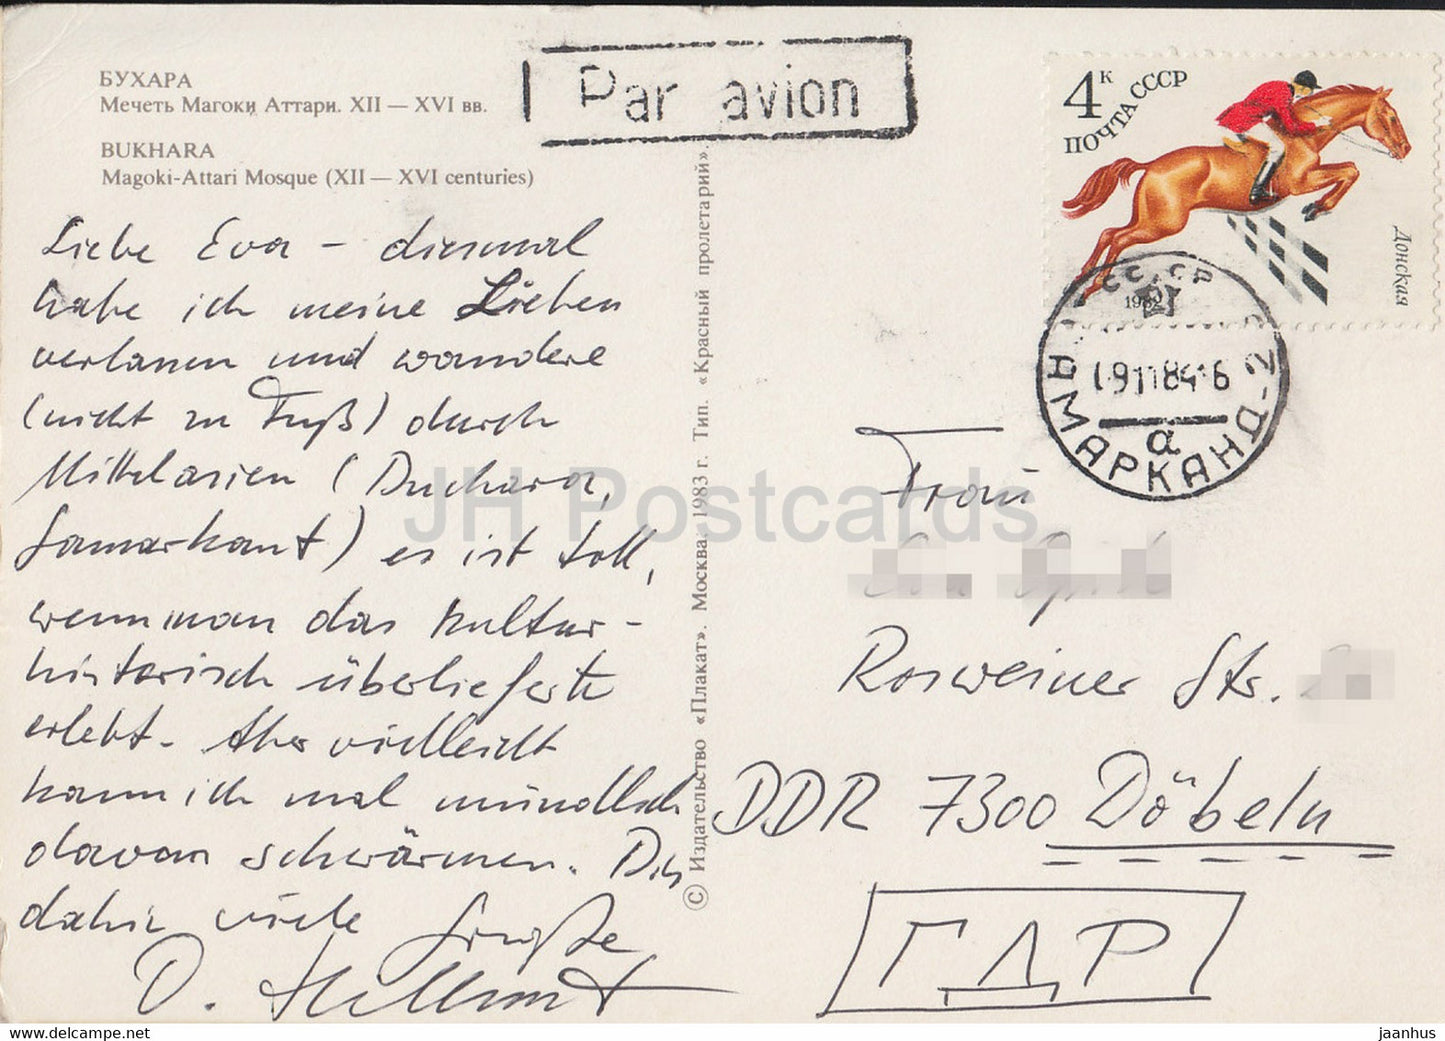 БУХАРА
Мечеть Магоки Аттари. XII — XVI вв.
BUKHARA
Magoki-Attari Mosque (XII — XVI centuries)
Par avion
4к
ПОЧТА СССР
Донская
1982
СССР
АМАРКАНД-2
191184-6
а
Liebe Eva – diesmal
habe ich meine Lieben
verlassen und wandere
(nicht zu Fuß) durch
Mittelasien (Buchara,
Samarkant) es ist toll,
wenn man das kultur-
historisch überlieferte
erlebt. Aber vielleicht
kann ich mal mündlich
davon schwärmen. Bis
dahin viele Grüße
D. Hellmut
© Издательство «Плакат». Москва. 1983 г. Тип. «Красный пролетарий».
Frau
Rosweiner Str.
DDR 7300 Döbeln
ГДР
JH Postcards
jaanhus
www.delcampe.net